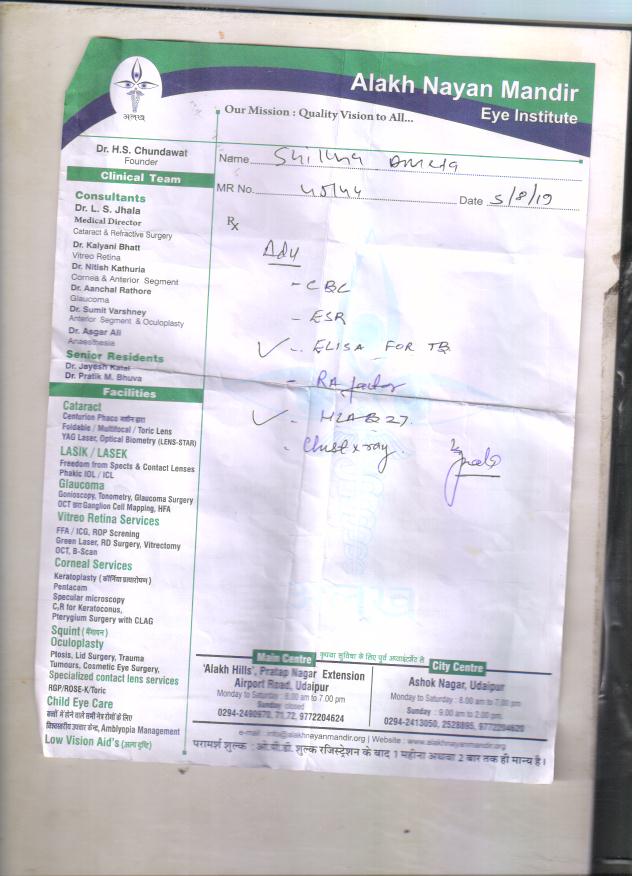 Alakh Nayan Mandir
Eye Institute
अलख
Our Mission : Quality Vision to All...
Dr. H.S. Chundawat
Founder
Clinical Team
Consultants
Dr. L. S. Jhala
Medical Director
Cataract & Refractive Surgery
Dr. Kalyani Bhatt
Vitreo Retina
Dr. Nitish Kathuria
Cornea & Anterior Segment
Dr. Aanchal Rathore
Glaucoma
Dr. Sumit Varshney
Anterior Segment & Oculoplasty
Dr. Asgar Ali
Anaesthesia
Senior Residents
Dr. Jayesh
Dr. Pratik M. Bhuva
Facilities
Cataract
Centurion Phaco मशीन द्वारा
Foldable / Multifocal / Toric Lens
YAG Laser, Optical Biometry (LENS-STAR)
LASIK / LASEK
Freedom from Specs & Contact Lenses
Phakic IOL / ICL
Glaucoma
Gonioscopy, Tonometry, Glaucoma Surgery
OCT द्वारा Ganglion Cell Mapping, HFA
Vitreo Retina Services
FFA / ICG, ROP Screening
Green Laser, RD Surgery, Vitrectomy
OCT, B-Scan
Corneal Services
Keratoplasty (कॉर्निया प्रत्यारोपण)
Pentacam
Specular microscopy
C,R for Keratoconus,
Pterygium Surgery with CLAG
Squint (भैंगापन)
Oculoplasty
Ptosis, Lid Surgery, Trauma
Tumours, Cosmetic Eye Surgery,
Specialized contact lens services
RGP/ROSE-K/Toric
Child Eye Care
बच्चों में होने वाले सभी नेत्र रोगों के लिए
विश्वस्तरीय उपचार केन्द्र, Amblyopia Management
Low Vision Aid's (अल्प दृष्टि)
Name
MR No. Date 5/8/19
Rx
Adv
- CBC
- ESR
- ELISA FOR TB
- RA factor
- HLA B27.
- Chest x ray.
कृपया सुविधा के लिए पूर्व अपाइंटमेंट ले
Main Centre
'Alakh Hills', Pratap Nagar Extension
Airport Road, Udaipur
Monday to Saturday : 8.00 am to 7.00 pm
Sunday closed
0294-2490970, 71,72, 9772204624
City Centre
Ashok Nagar, Udaipur
Monday to Saturday : 8.00 am to 7.00 pm
Sunday : 9.00 am to 2.00 pm
0294-2413050, 2528895, 9772204620
e-mail : info@alakhnayanmandir.org | Website : www.alakhnayanmandir.org
परामर्श शुल्क : ओ.पी.डी. शुल्क रजिस्ट्रेशन के बाद 1 महीना अथवा 2 बार तक ही मान्य है।